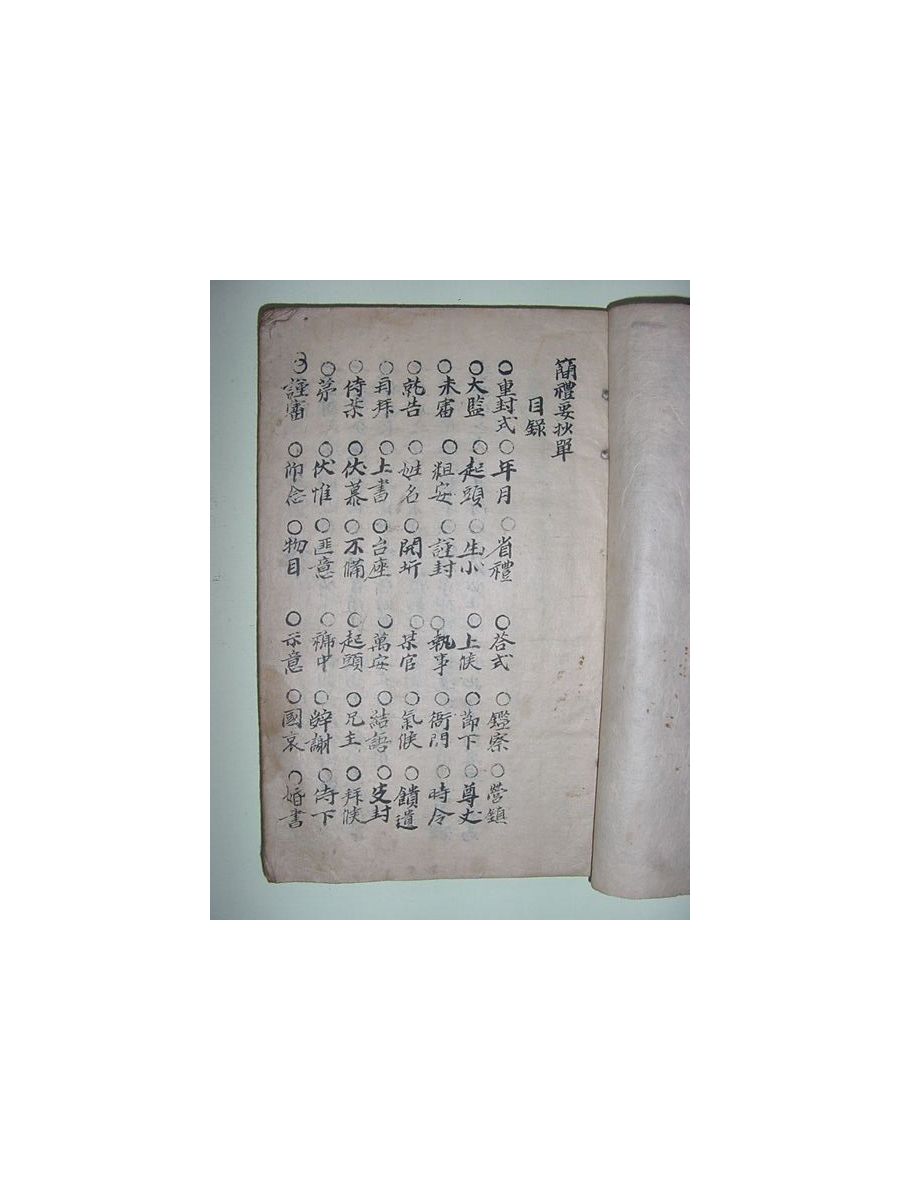 簡禮要抄單
目錄
○重封式○年月○省禮○答式○鑑察○營鎮
○大監○起頭○生小○上候○節下○尊丈
○未審○粗安○謹封○執事○衙門○時令
○就告○姓名○開坼○某官○氣候○饋遺
○再拜○上書○台座○萬安○結語○支封
○侍茶○伏慕○不備○起頭○兄主○拜候
○茅○伏惟○匪意○稱中○辭謝○侍下
○謹審○仰念○物目○示意○國哀○婚書